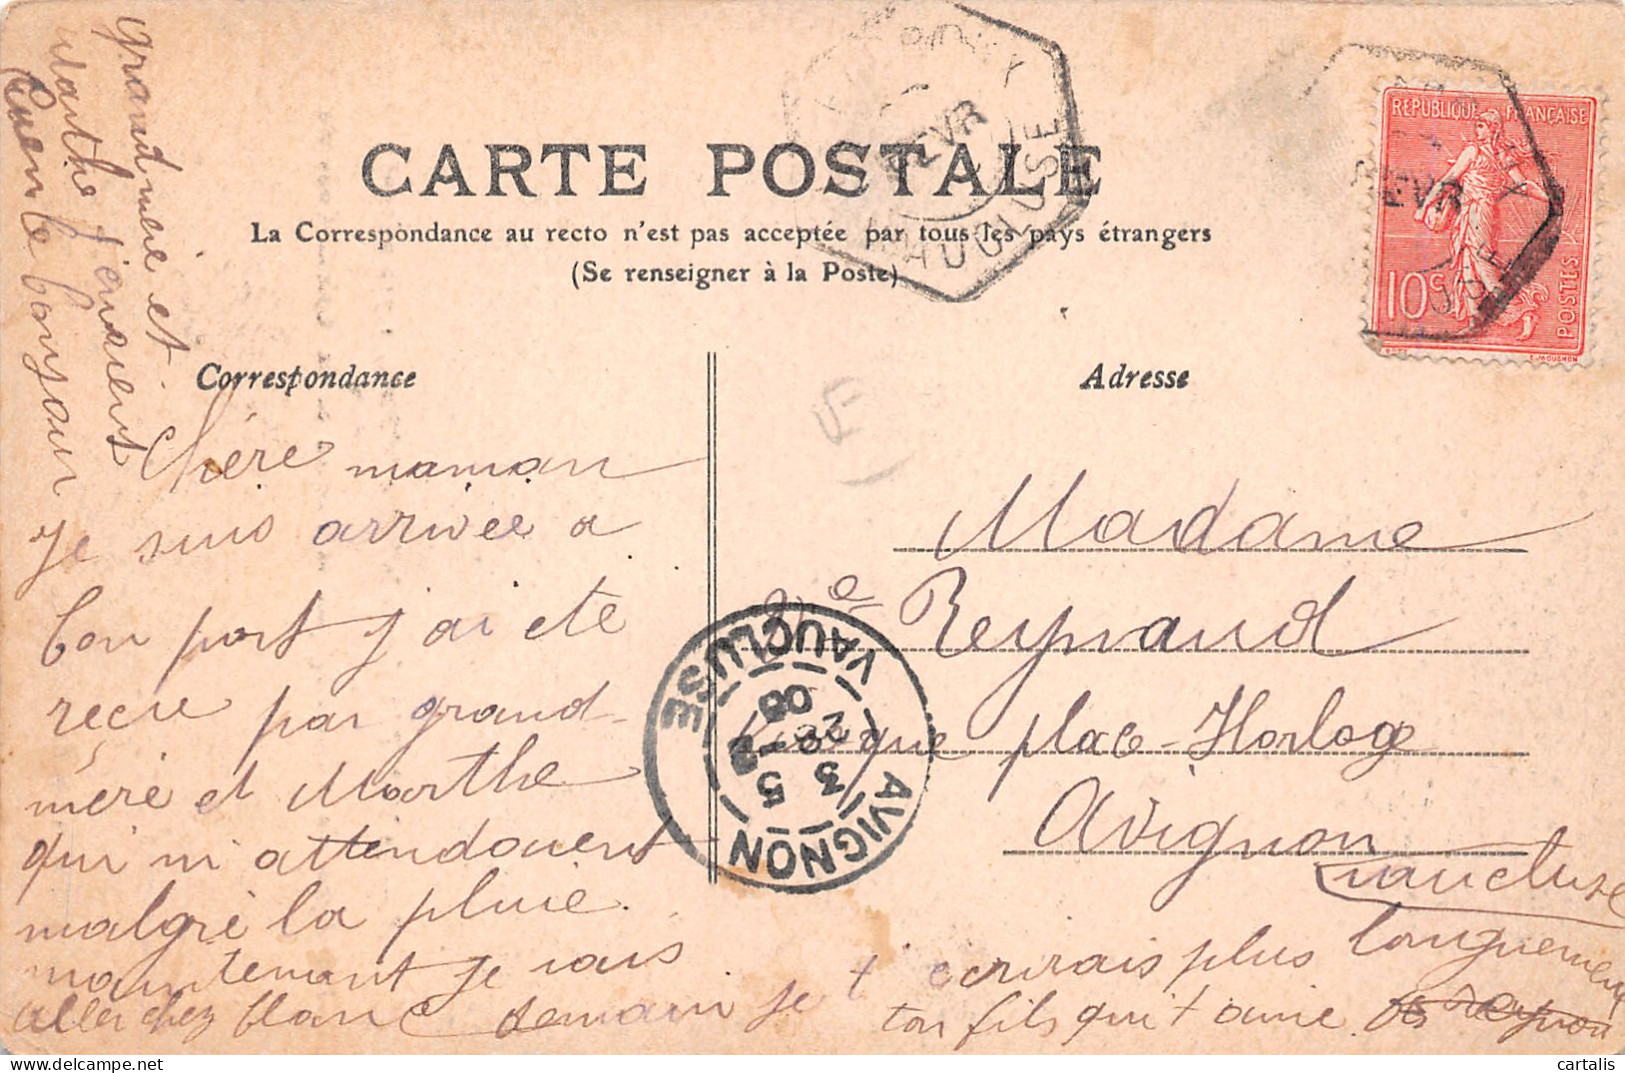 CARTE POSTALE
La Correspondance au recto n'est pas acceptée par tous les pays étrangers
(Se renseigner à la Poste)
Correspondance
Adresse
REPUBLIQUE FRANÇAISE
10c
POSTES
E. MOUCHON
FEVR
FEVR
Chère maman
je suis arrivée a
bon port j'ai ete
reçue par grand-
mère et Marthe
qui m'attendouent
malgré la pluie.
maintenant je vais
aller chez blanc demain je t'ecrirais plus longuement
ton fils qui t'aime
grand mère et
Marthe j'envoient
le bonjour
Madame
Vve Reynaud
place Horloge
Avignon
Vaucluse
AVIGNON
VAUCLUSE
3 5
28 - 2
05
E
cartalis